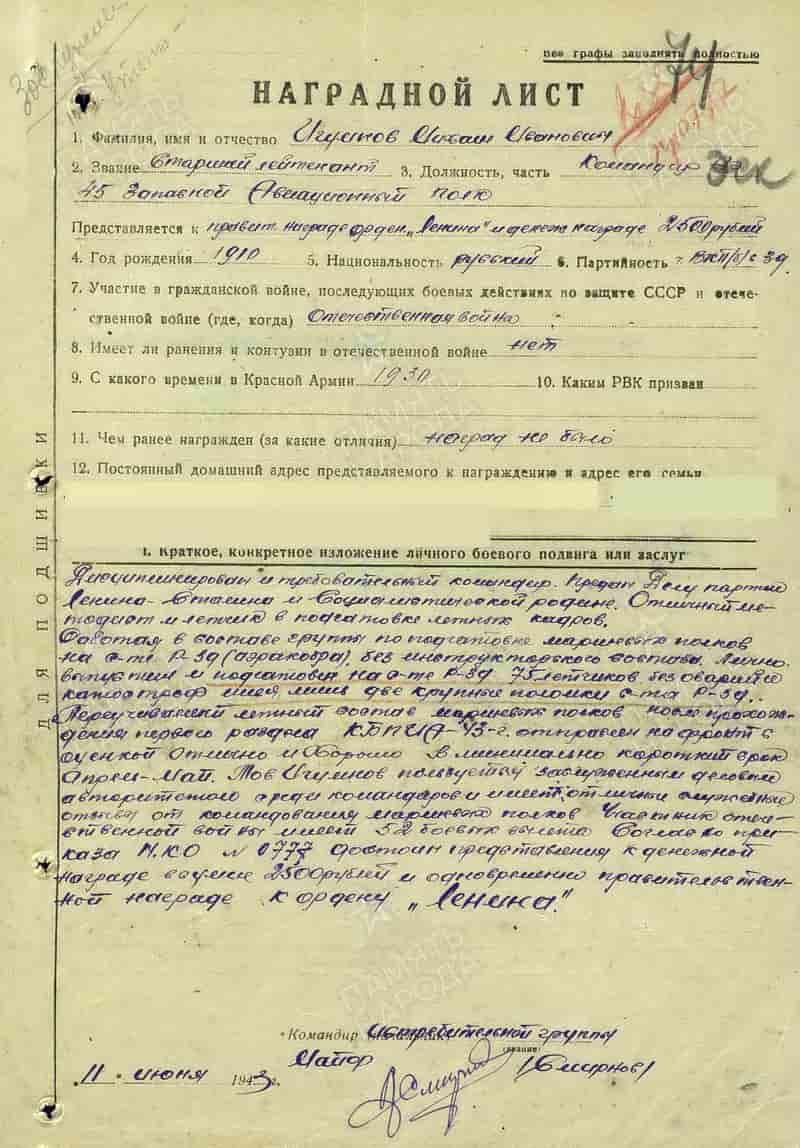 все графы заполнять полностью
74
НАГРАДНОЙ ЛИСТ
1. Фамилия, имя и отчество Игумнов Михаил Иванович
2. Звание Старший лейтенант 3. Должность, часть Командир
45 Запасной Авиационный полк
Представляется к правит. награде орден „Ленина" и денеж награде 2500 рублей
4. Год рождения 1910 5. Национальность русский 6. Партийность ВКП/б/с 39
7. Участие в гражданской войне, последующих боевых действиях по защите СССР и отече-
ственной войне (где, когда) Отечественная война
8. Имеет ли ранения и контузии в отечественной войне нет
9. С какого времени в Красной Армии 1930 10. Каким РВК призван
11. Чем ранее награжден (за какие отличия) наград не было
12. Постоянный домашний адрес представляемого к награждению и адрес его семьи
ДЛЯ ПОДШИВКИ
1. Краткое, конкретное изложение личного боевого подвига или заслуг
Дисциплинирован и требовательный командир. Предан Делу партии
Ленина-Сталина и Социалистической родине. Отличный ме-
тодист и летчик в подготовке летных кадров.
Работая в составе группы по подготовке маршевых полков
на с-те Р-39 (аэракобра) без инструкторского состава. Лично
выпустил и подготовил на с-те Р-39 75 летчиков без аварий и
катастроф имея лишь две крупные поломки с-та Р-39.
Переучиваемый летный состав маршевых полков после прохож-
дения первого раздела КБПИА-43-г. отправлен на фронт с
оценкой Отлично и Хорошо в минимально короткий срок
Апрель-Май. Тов Игумнов пользуется заслуженным деловым
авторитетом среди командиров и имеет отличные служебные
отзывы от командования маршевых полков Участник отече-
ственной войны имеет 52 боевых вылета Согласно при-
каза Н.К.О № 0777 достоин представления к денежной
награде в сумме 2500 рублей и одновременно правительствен-
ной награде к ордену „Ленина."
Командир Истребительной группы
Майор (звание) /Смирнов/
11 июня 1943 г.
ПАМЯТЬ
НАРОДА